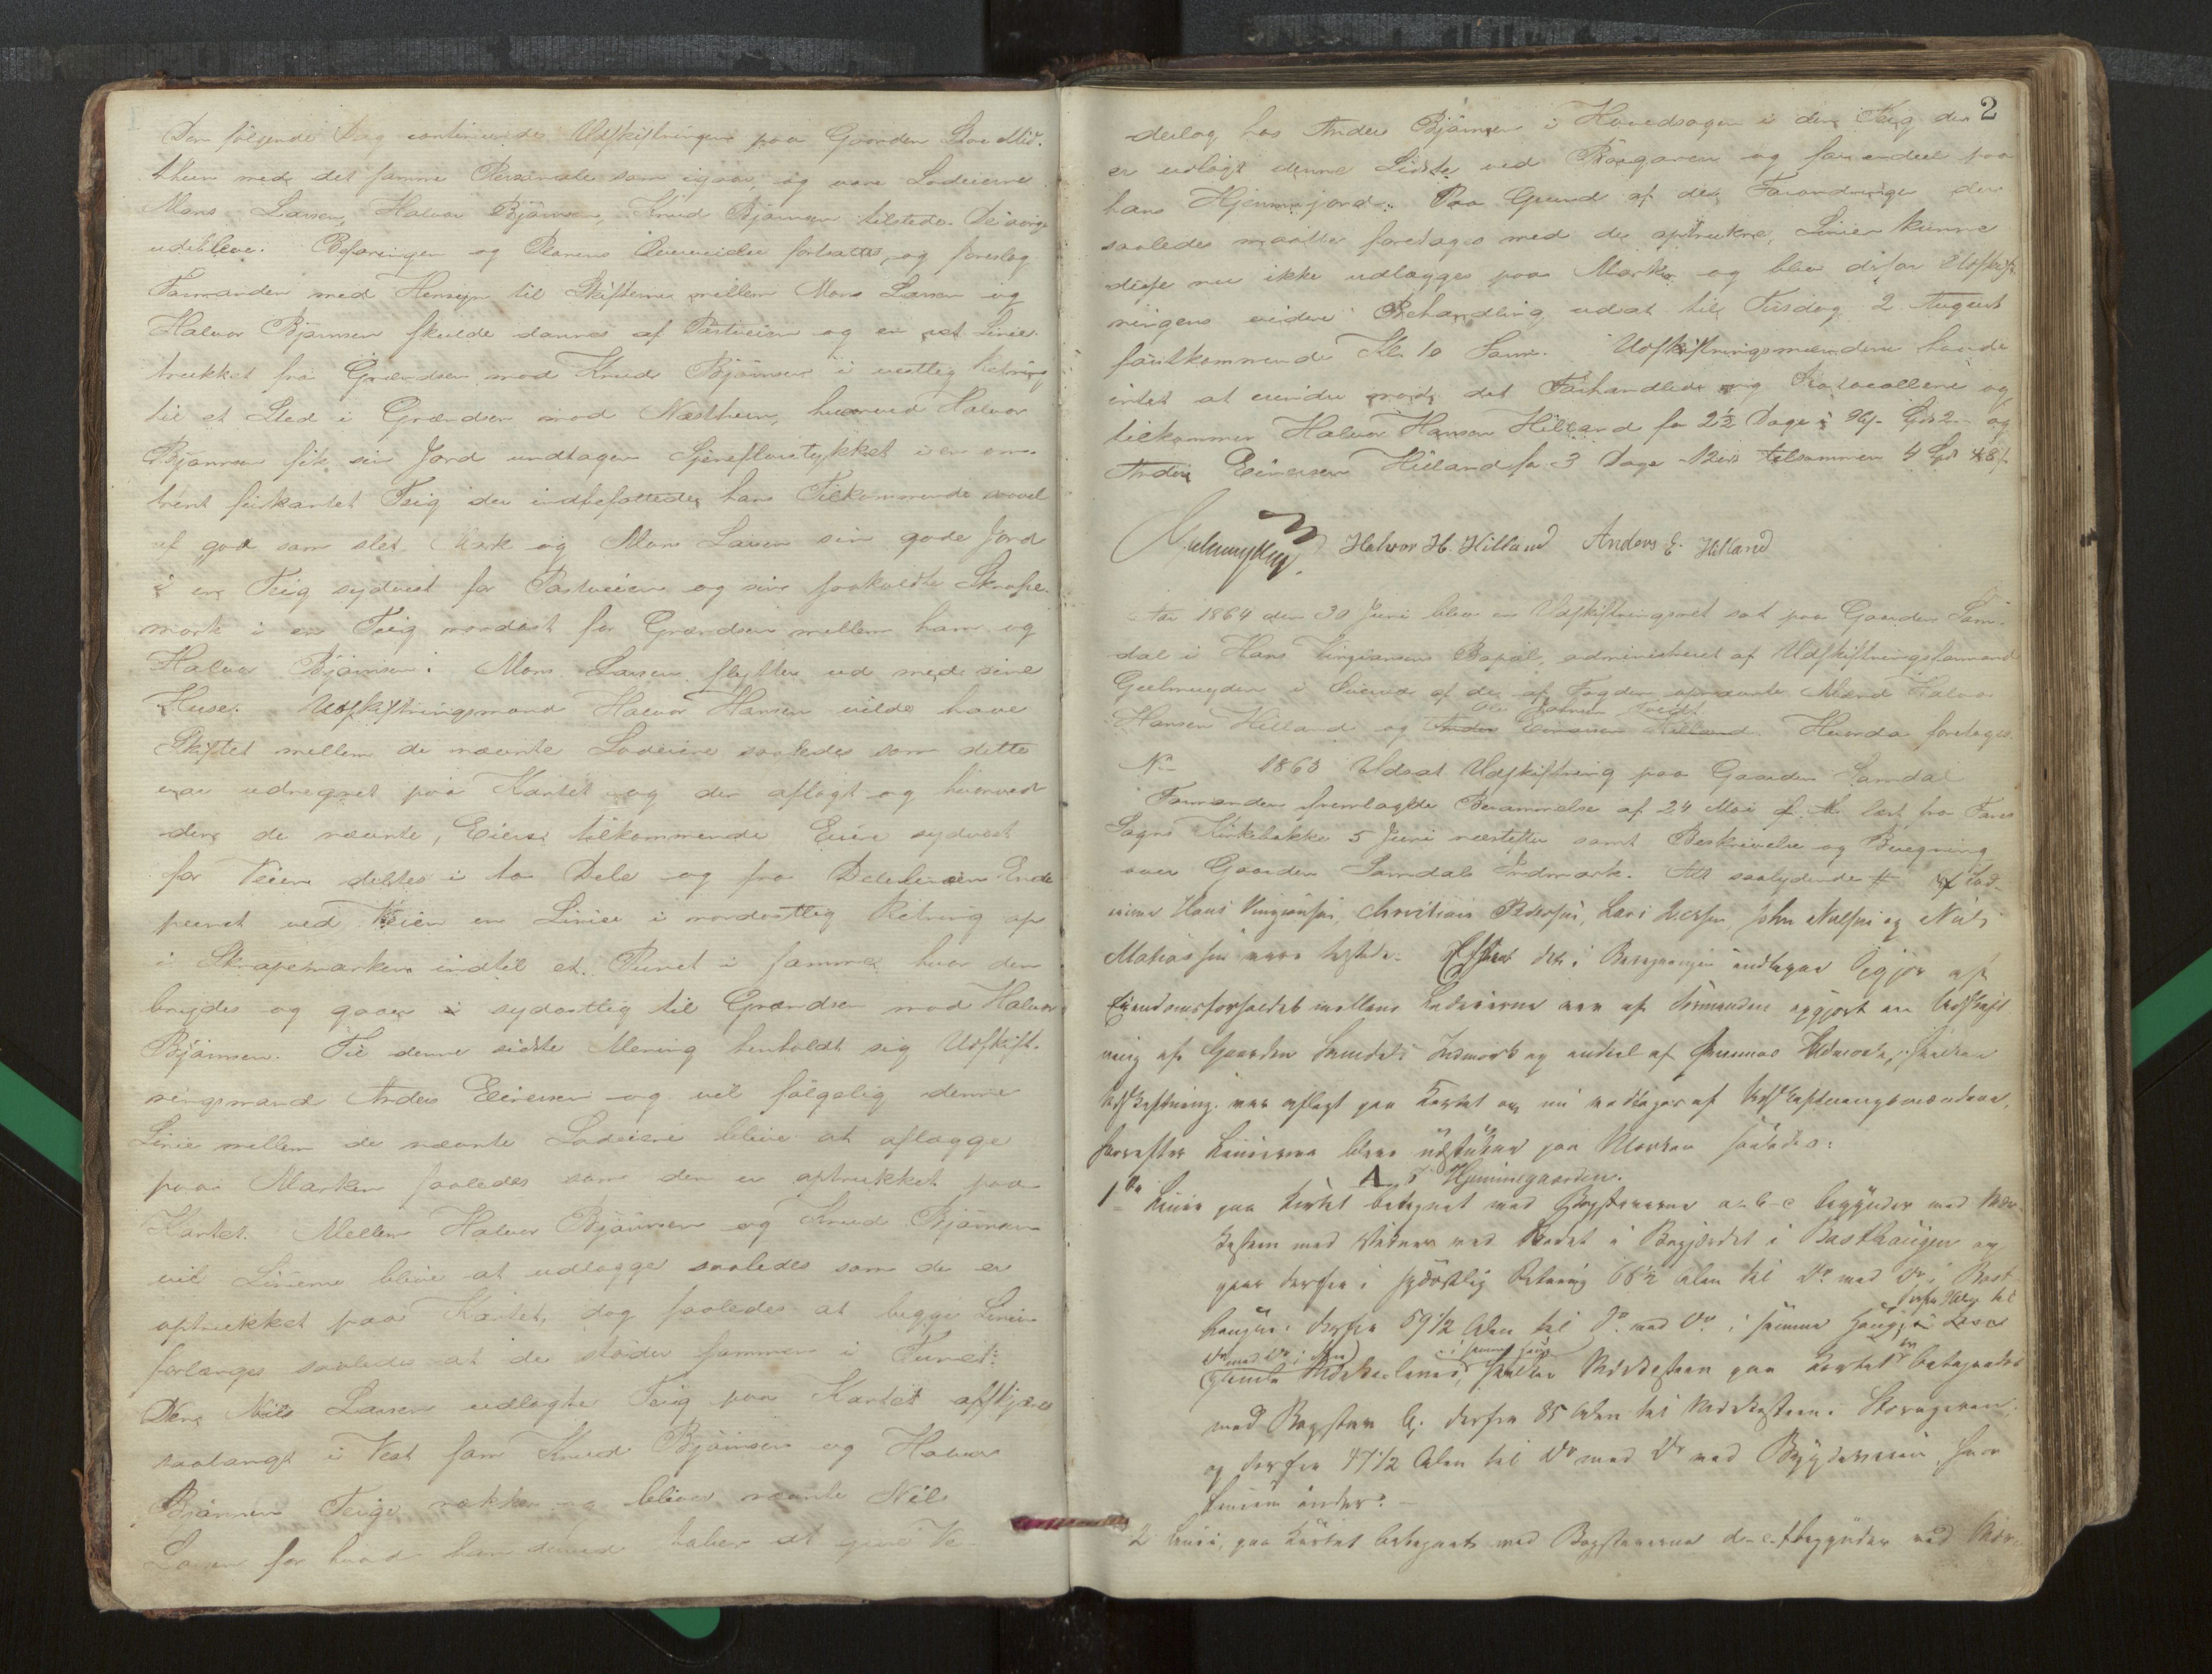 Den følgende Dag continueredes Udskiftningen paa Gaarden Store Mid-
theim med det samme Personale som igaar, og vare Lodeierne
Mons Larsen, Halvor Bjørnsen, Knud Bjørnsen tilstede. De øvrige
udebleve. Befaringen og Planens Overveielse fortsattes, og foreslog
Formanden med Hensyn til Skifterne mellem Mons Larsen og
Halvor Bjørnsen skulde dannes af Postveien og en ret Linie
trukket fra Grændsen mod Knud Bjørnsen i vestlig Retning
til et Sted i Grændsen mod Næstheim, hvorved Halvor
Bjørnsen fik sin Jord undtagen i en om-
trent firkantet Teig der indbefattede hans Tilkommende saavel
af god som slet Mark og Mons Larsen sin gode Jord
i en Teig sydvest for Postveien og sin Skrape-
mark i en Teig nordost for Grændsen mellem ham og
Halvor Bjørnsen. Mons Larsen flytter ud med sine
Huse. Udskiftningsmand Halvor Hansen vilde have
Skiftet mellem de nævnte Lodeiere saaledes som dette
var udregnet paa Kartet og der aflagt og hvorved
den de nævnte Eiere tilkommende Eiere sydvest
for Veien deltes i to Dele og fra Delelinien Ende
punct ved Veien en Linie i nordostlig Retning op
i Skrapemarken indtil et Punct i samme hvor den
brydes og gaaer i sydostlig til Grændsen mod Halvor
Bjørnsen. Til denne sidste Mening henholdt sig Udskift-
ningsmand Anders Einersen og vil følgelig denne
Linie mellem de nævnte Lodeiere blive at aflægge
paa Marken saaledes som den er optrukket paa
Kartet. Mellem Halvor Bjørnsen og Knud Bjørnsen
vil Linierne blive at udlægge saaledes som de er
optrukket paa Kartet, dog saaledes at begge Linier
forlænges saaledes at de støder sammen i Tunet.
Den Nils Larsen udlagte Teig paa Kartet afskjæres
saalangt i Vest som Knud Bjørnsen og Halvor
Bjørnsens Teige rækker og bliver nævnte Nils
Larsen for hvad han derved taber at give Ve-
2
derlag hos Anders Bjørnsen i Hovedsagen i den Teig der
er udlagt denne Sidste ved og for endeel paa
hans Hjemmejord. Paa Grund af de Forandringer der
saaledes maatte foretages med de optrukne Linier kunne
disse nu ikke udlægges paa Marken og blev derfor Udskift-
ningens videre Behandling udsat til Tirsdag 2 August
førstkommende Kl. 10 Form. Udskiftningsmændene havde
intet at erindre mod det Forhandlede og Protocollerne og
tilkommer Halvor Hansen Hilland for 2½ Dage
Anders Einersen Hilland for 3 Dage tilsammen 4 Spd 48 s.
Halvor H. Hilland Anders E. Hilland
Aar 1864 den 30 Juni blev en Udskiftningsret sat paa Gaarden Sam-
dal i Hans Bopæl, administreret af Udskiftningsformand
Geelmuyden i Overvær af de af Fogden opnævnte Mænd Halvor
Hansen Hilland og Anders Einersen Hilland Hvorda foretoges
No 1863 Udsat Udskiftning paa Gaarden Samdal
Formanden fremlagde Berammelse af 24 Mai læst fra Fane
Sogns Kirkebakke 5 Juni næstefter samt Beskrivelse og Beregning
over Gaarden Samdals Indmark. Alt saalydende Af Lod-
eierne Hans Christian Pedersen, Lars Iversen, John Nilsen og Nils
Mathiassen vare tilstede. Efter det i Beregningen Opgjør af
Eiendomsforholdet mellem Lodeierne var af Formanden opgjort en Udskift
ning af Gaarden Samdals Indmark og endeel af sammes Udmark, hvilken
Udskiftning var aflagt paa Kartet og nu vedtoges af Udskiftningsmændene,
hvorefter Linierne bleve udstukne paa Marken saaledes:
A. Hjemmegaarden.
1ste Linie paa Kartet betegnet med Bogstaverne a-b-c begynder med Mær-
kesteen med Vidner ved i Bøgjerdet i Basthaugen og
gaar derfra i sydostlig Retning 68½ Alen til Do med Do i Bast
haugen: derfra 59½ Alen til Do med Do i samme Haug
i samme Haug
hvilken Mærkesteen paa Kartet er betegnet
med Bogstav b; derfra 85 Alen til Mærkesteen i Storageren
og derfra 47½ Alen til Do med Do ved Bygdeveien, hvor
Linien ender. -
2 Linie, paa Kartet betegnet med Bogstaverne d-e-f begynder ved Mær-